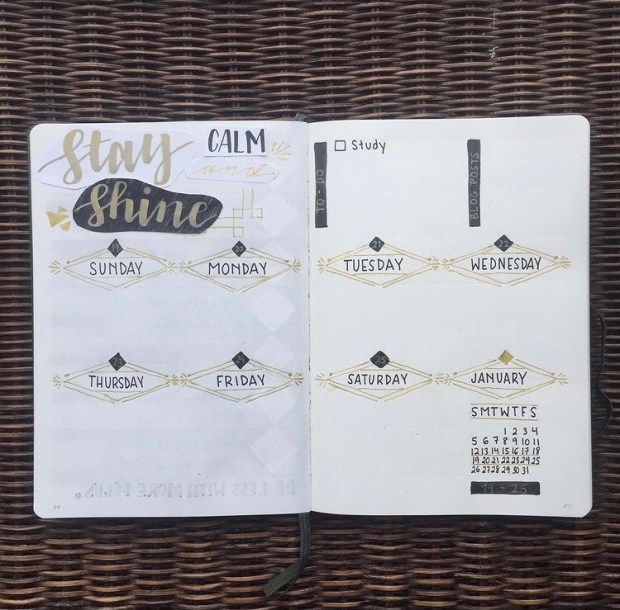 Stay
CALM
and
Shine
19
SUNDAY
20
MONDAY
23
THURSDAY
24
FRIDAY
TO-DO
Study
BLOG POSTS
21
TUESDAY
22
WEDNESDAY
25
SATURDAY
JANUARY
S M T W T F S
1 2 3 4
5 6 7 8 9 10 11
12 13 14 15 16 17 18
19 20 21 22 23 24 25
26 27 28 29 30 31
19 - 25